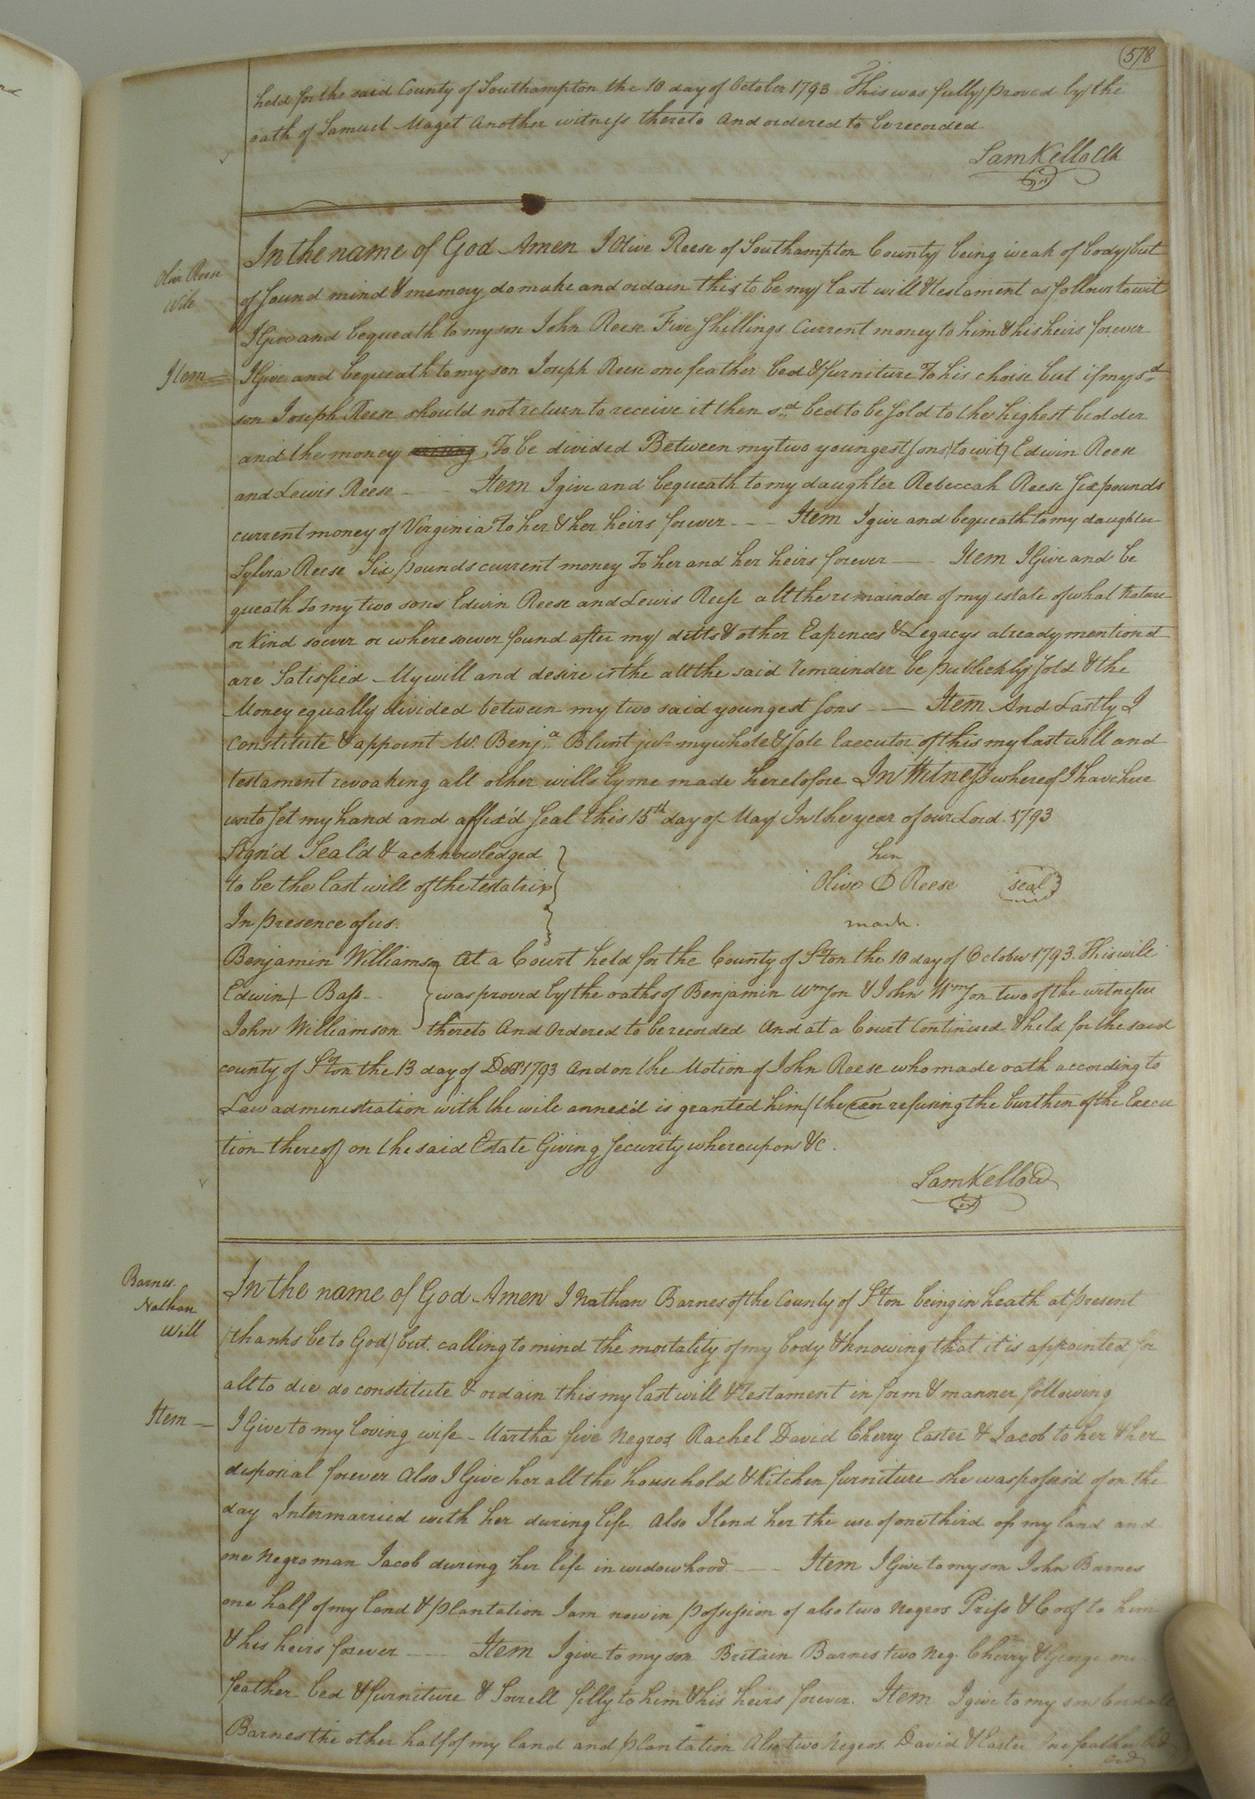 578
held for the said County of Southampton the 10 day of October 1793 This was fully proved by the
oath of Samuel Maget Another witness thereto And ordered to be recorded
Sam Kello Clk
Olive Reese
Will
In the name of God Amen I Olive Reese of Southampton County being weak of body but
of sound mind & memory do make and ordain this to be my last will & testament as follows to wit
I Give and bequeath to my son John Reese Five Shillings Current money to him & his heirs forever
Item
I Give and bequeath to my son Joseph Reese one feather bed & furniture To his choise but if my sd
son Joseph Reese should not return to receive it then sd bed to be sold to the highest bedder
and the money To be divided Between my two youngest sons (to wit) Edwin Reese
and Lewis Reese - - Item I give and bequeath to my daughter Rebeccah Reese Six pounds
current money of Virginia To her & her heirs forever - - - Item I give and bequeath to my daughter
Sylvia Reese Six pounds current money To her and her heirs forever - - Item I Give and be
queath to my two sons Edwin Reese and Lewis Reese all the remainder of my estate of what Nature
or kind soever or where soever found after my debts & other Expences & Legacys already mentiond
are Satisfied - My will and desire is the all the said remainder be publickly sold & the
Money equally divided between my two said youngest sons - - Item And Lastly I
Constitute & appoint Mr. Benja Blunt junr my whole & sole Executor of this my last will and
testament revoaking all other wills by me made heretofore In Witness whereof I have here
unto set my hand and affixd Seal this 15th day of May In the year of our Lord 1793
Sign'd Seal'd & acknowledged
to be the last will of the testatrix
In presence of us.
her
Olive D Reese seal
mark.
Benjamin Williamson
Edwin + Bass
John Williamson
At a Court held for the County of Sºton the 10 day of October 1793. This will
was proved by the oaths of Benjamin Wmson & John Wmson two of the witnesses
thereto And Ordered to be recorded And at a Court Continued & held for the said
county of Sºton the 13 day of Decr 1793 And on the Motion of John Reese who made oath according to
Law administration with the wile annex'd is granted him (the Exor refusing the burthen of the Execu
tion thereof) on the said Estate Giving security whereupon &c.
Sam Kello Cl
Barnes
Nathan
Will
In the name of God Amen I Nathan Barnes of the County of Sºton being in heath at present
(thanks be to God) but calling to mind the mortality of my body & knowing that it is appointed for
all to die do constitute & ordain this my last will & Testament in form & manner following
Item -
I Give to my loving wife - Martha five Negros Rachel David Cherry Easter & Jacob to her & her
disposial forever Also I Give her all the household & Kitchen furniture she was possesd of on the
day Intermarried with her during life Also I lend her the use of one third of my land and
one Negro man Jacob during her life in widowhood - - - Item I Give to my son John Barnes
one half of my land & plantation I am now in possession of also two Negros Priss & to him
& his heirs forever - - - Item I give to my son Britain Barnes two Neg. Cherry & George one
feather bed & furniture & Sorrell filly to him & his heirs forever. Item I give to my son
Barnes the other half of my land and plantation Also two Negros David & Easter One feather bed